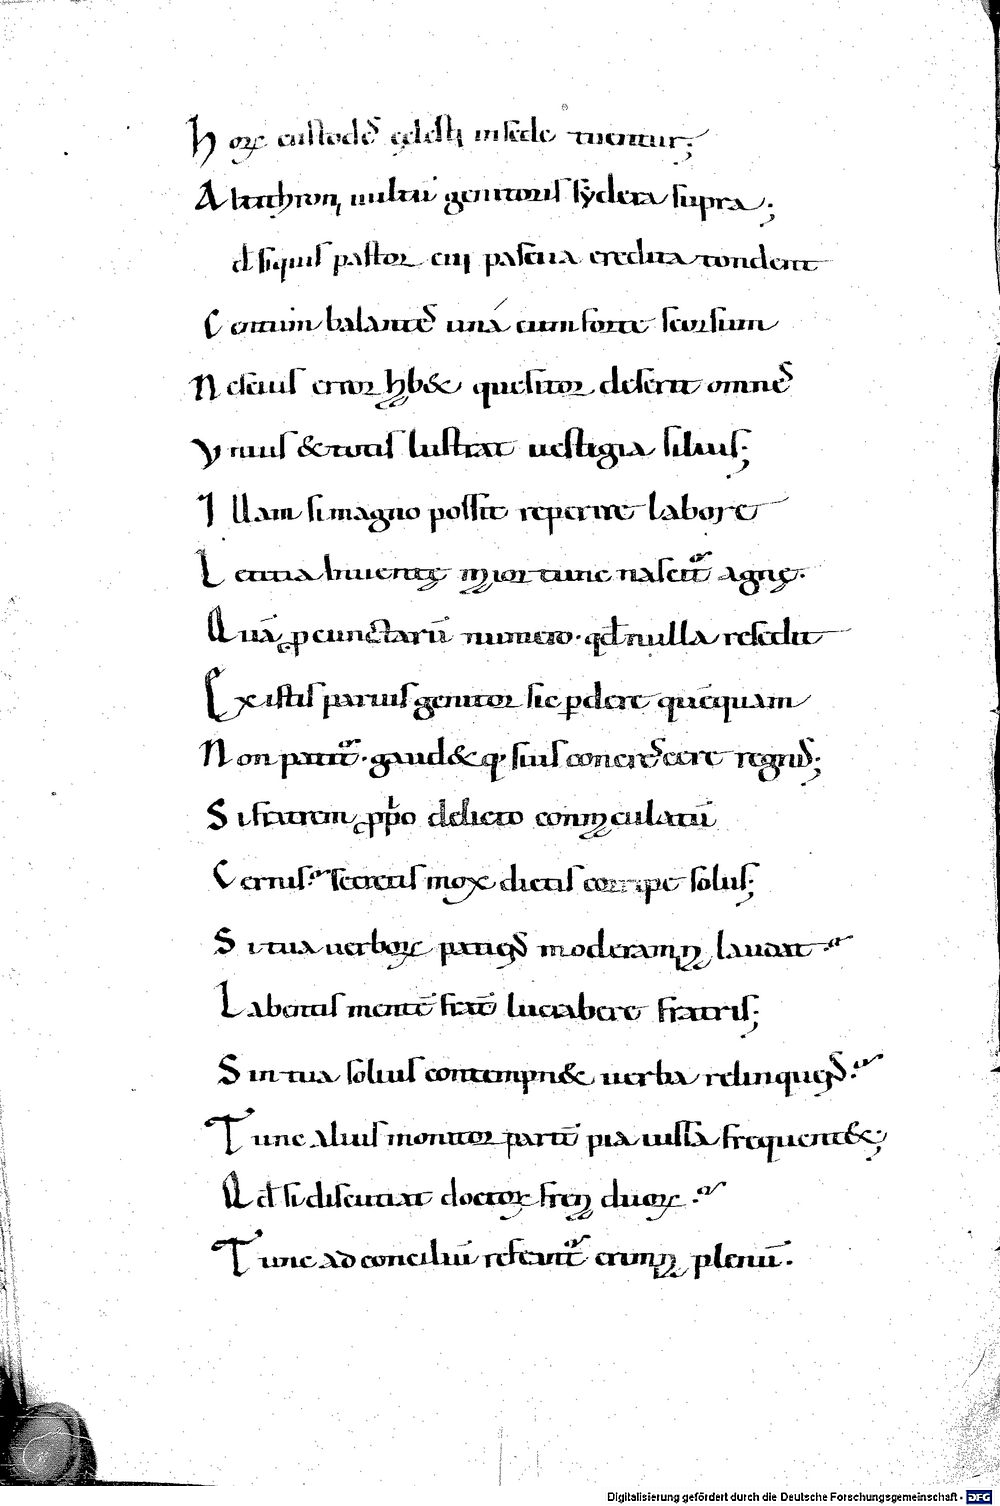 Hoꝝ custodes cęlesti in sede tuentur;
Altithroni uultu genitoris sydera supra;
d̄ siquis pastor cui pascua credita tondent
Centum balantes una cum sorte seorsum
Nescius error hb& quesitor deserit omnes
Vnius & totis lustrat uestigia siluis;
Illam si magno possit reperire labore
Letitia inuentę maior tunc nascit᷑ agnę.
Quā p cunctarū numero. qd̄ nulla resedit
Ex istis paruis genitor sic ꝑdere quēquam
Non patit᷑. gaud& q; suis concrescere regnis;
Si fratrem ꝓprio delicto conmaculatū
Cernis. secretis mox dictis corripe solus;
Si tua uerboꝝ patiens moderamina laudat
Labentis mentē fratē lucrabere fratris;
Sin tua solius contempn& uerba relinquens.
Tunc alius monitor partē pia iussa frequent&;
Ad si discutiat doctoꝝ frena duoꝝ.
Tunc ad conciliū referant᷑ crimina plenū.
Digitalisierung gefördert durch die Deutsche Forschungsgemeinschaft - DFG